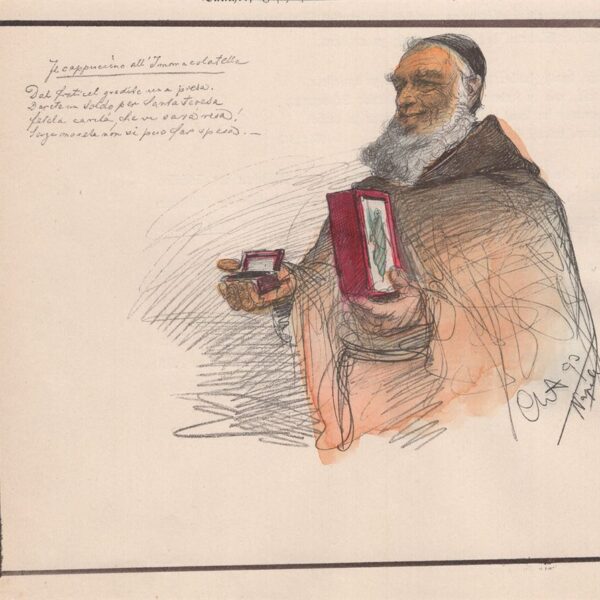 Il cappuccino all'Immacolatella
Dal fraticel gradite una presa.
Darete un soldo per Santa Teresa
fate la carità, che vi sarà resa!
Senza moneta non si può far spesa. —
90
Napoli